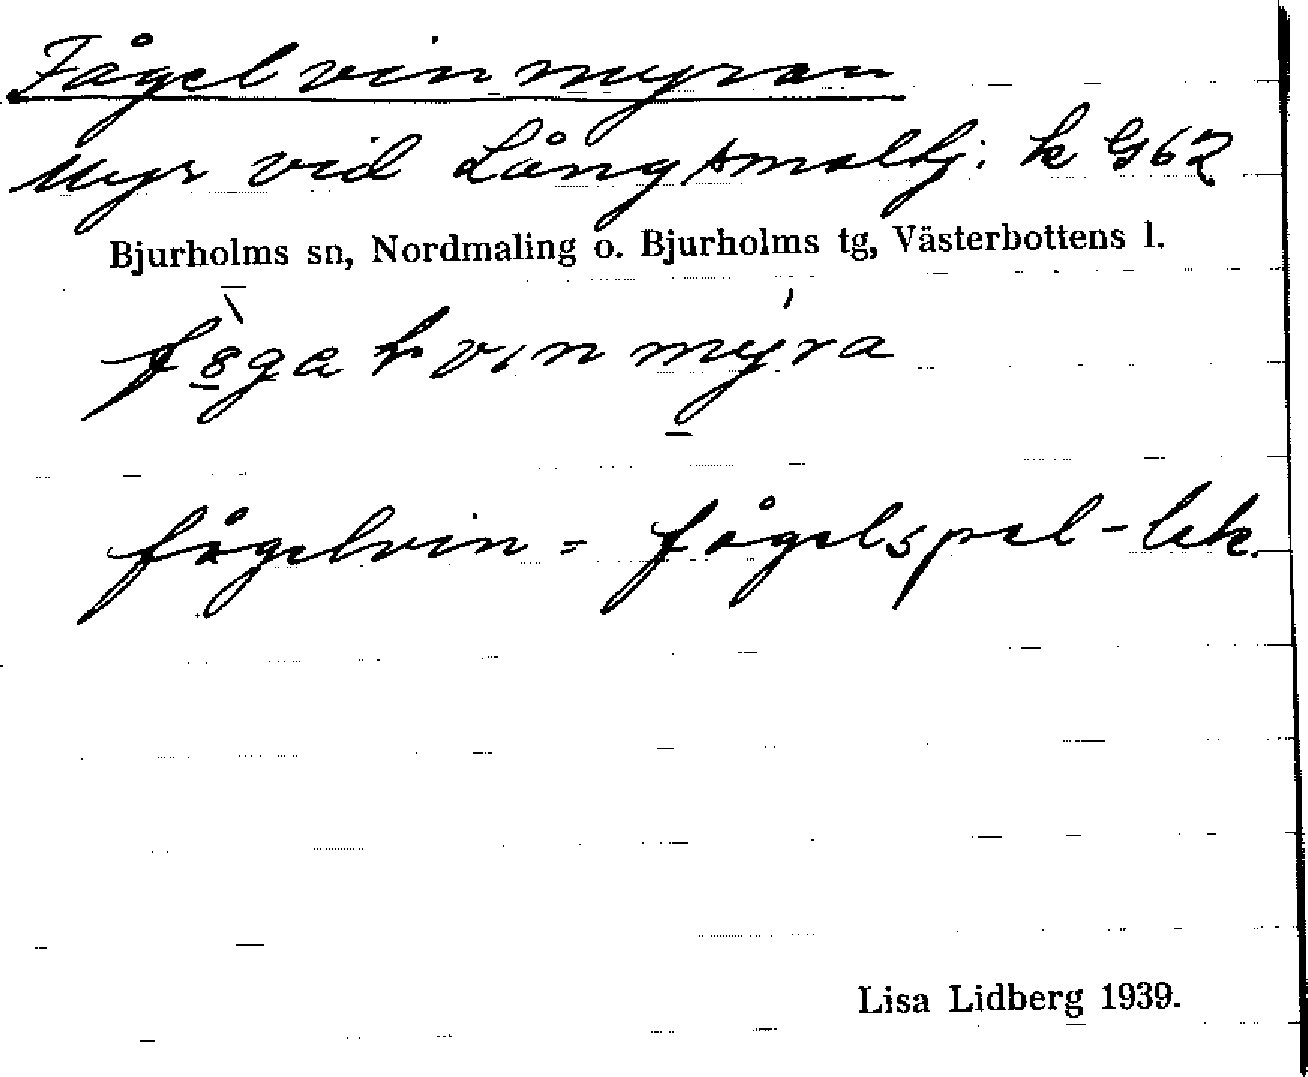 Fågelvinmyran
Myr vid Långsmaltj: k G62
Bjurholms sn, Nordmaling o. Bjurholms tg, Västerbottens l.
fågelvin = fågelspel-lek.
Lisa Lidberg 1939.